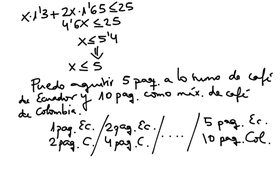 x·1'3 + 2x·1'65 ≤ 25
4'6x ≤ 25
x ≤ 5'4
⇓
x ≤ 5
Puedo adquirir 5 paq. a lo sumo de café
de Ecuador y 10 paq. como máx. de café
de Colombia.
1 paq. Ec. / 2 paq. Ec. / . . . . / 5 paq. Ec.
2 paq. C. / 4 paq. C. / 10 paq. Col.